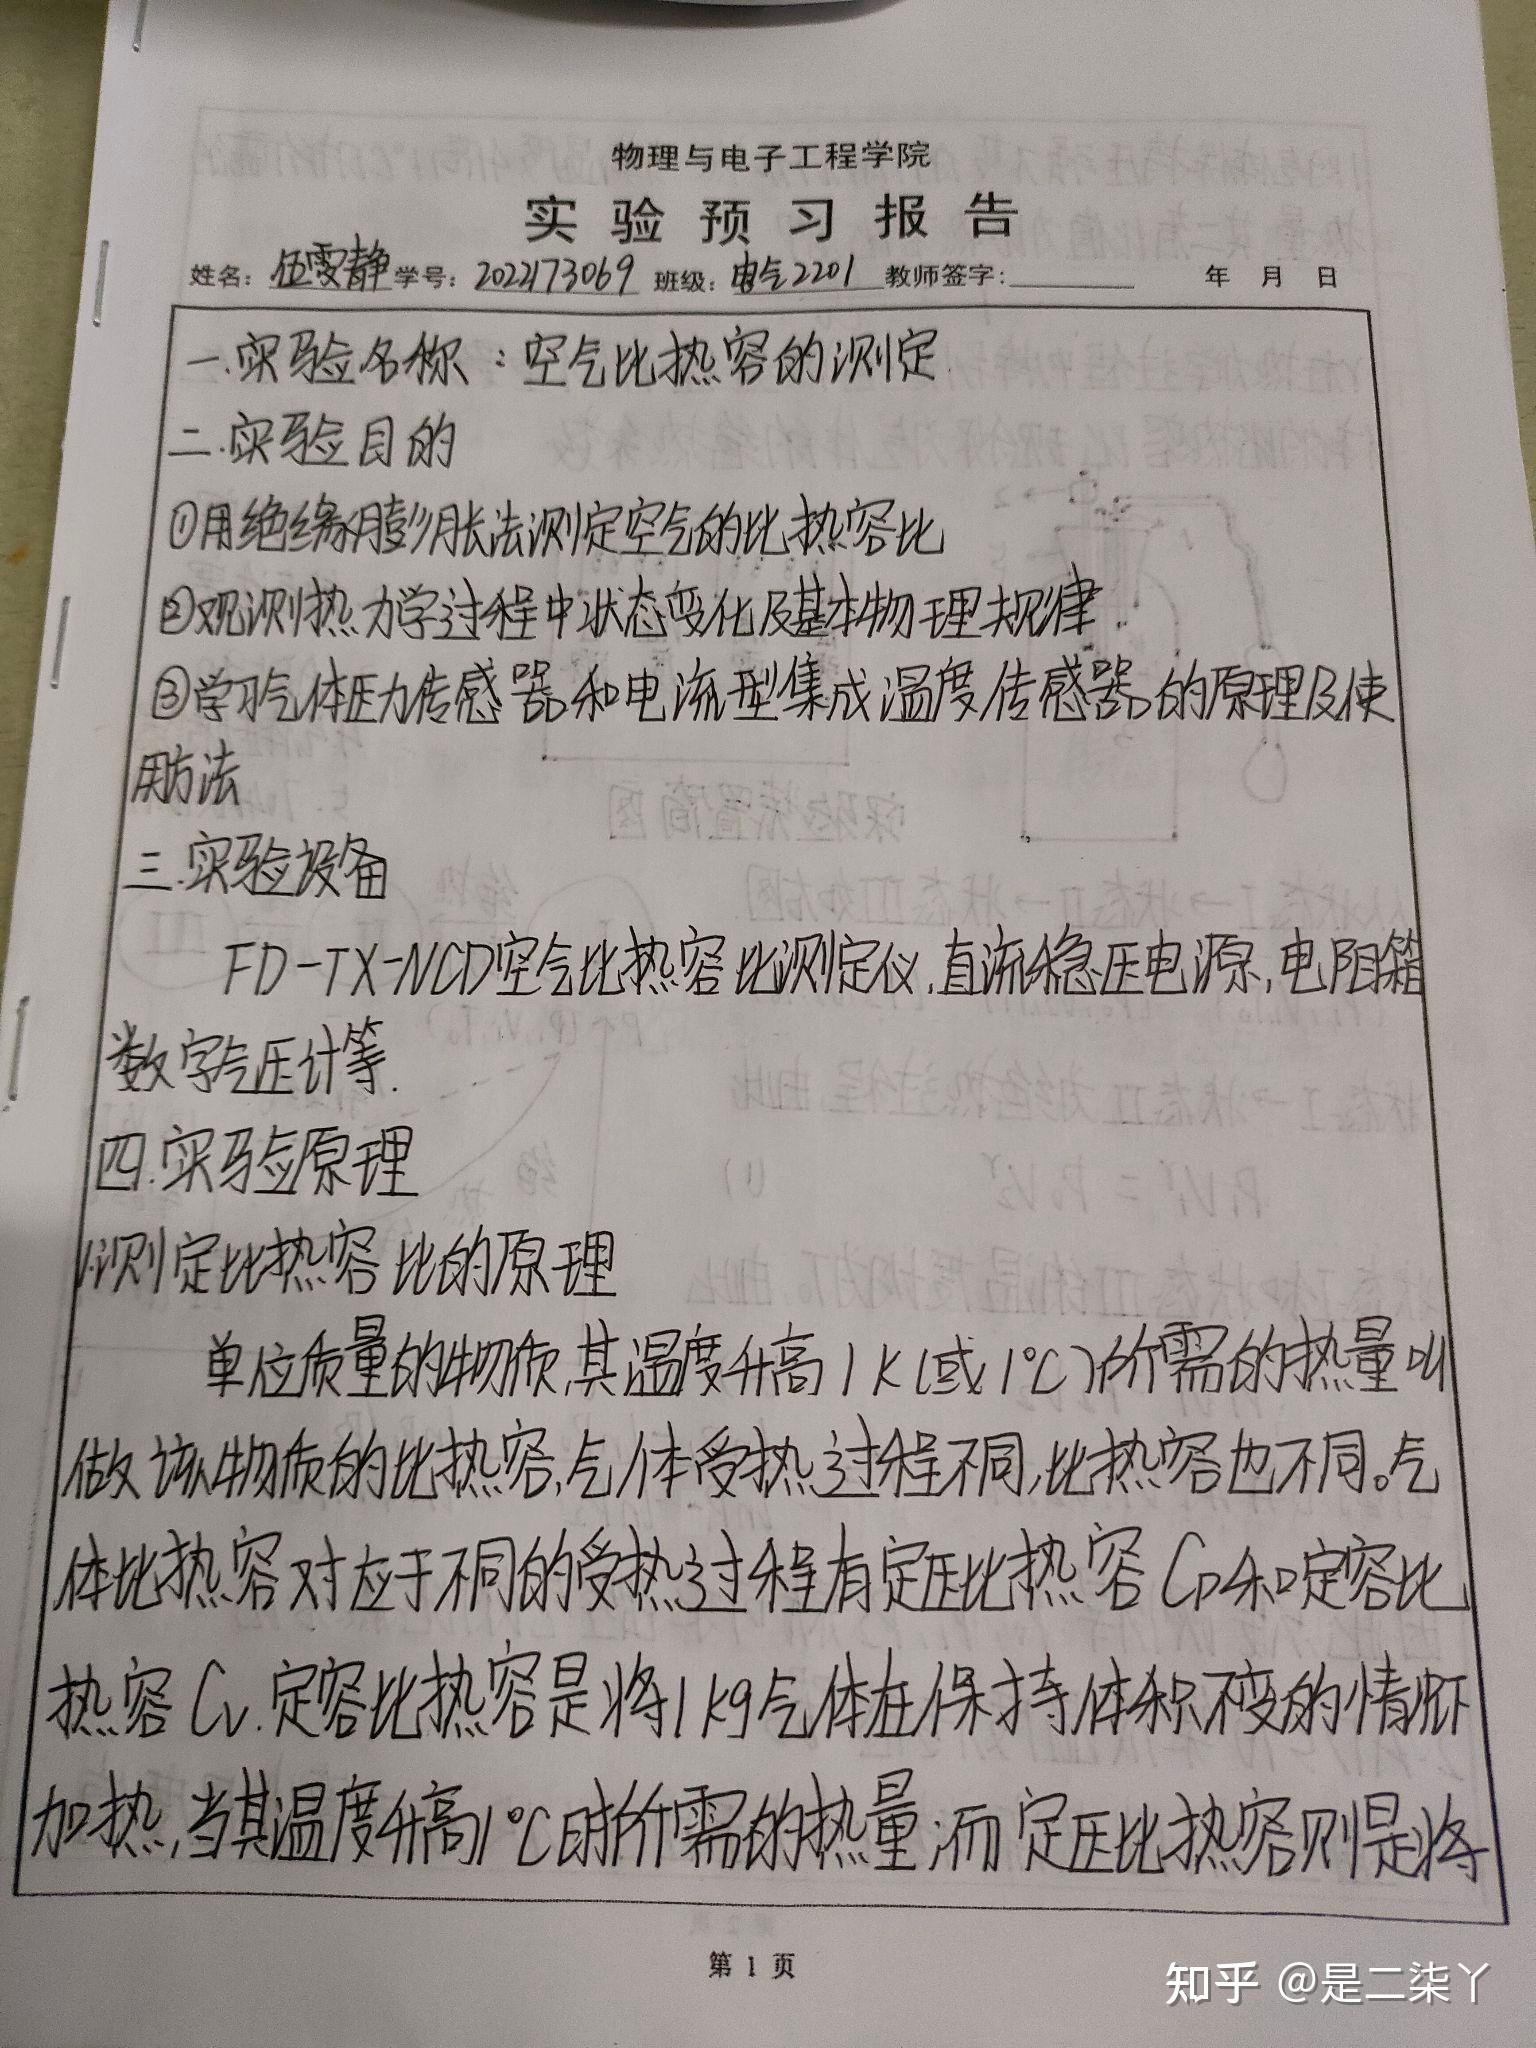 物理与电子工程学院
实验预习报告
姓名: 伍雯静 学号: 2022173069 班级: 电气2201 教师签字: 年 月 日
一.实验名称:空气比热容的测定
二.实验目的
①用绝缘膨胀法测定空气的比热容比
②观测热力学过程中状态变化及基本物理规律.
③学习气体压力传感器和电流型集成温度传感器的原理及使
用方法
三.实验设备
FD-TX-NCD空气比热容比测定仪,直流稳压电源,电阻箱
数字气压计等.
四.实验原理
1.测定比热容比的原理
单位质量的物质,其温度升高1K(或1℃)所需的热量叫
做该物质的比热容,气体受热过程不同,比热容也不同。气
体比热容对应于不同的受热过程有定压比热容Cp和定容比
热容Cv.定容比热容是将1kg气体在保持体积不变的情况下
加热,当其温度升高1℃时所需的热量;而定压比热容则是将
第 1 页
知乎 @是二柒丫